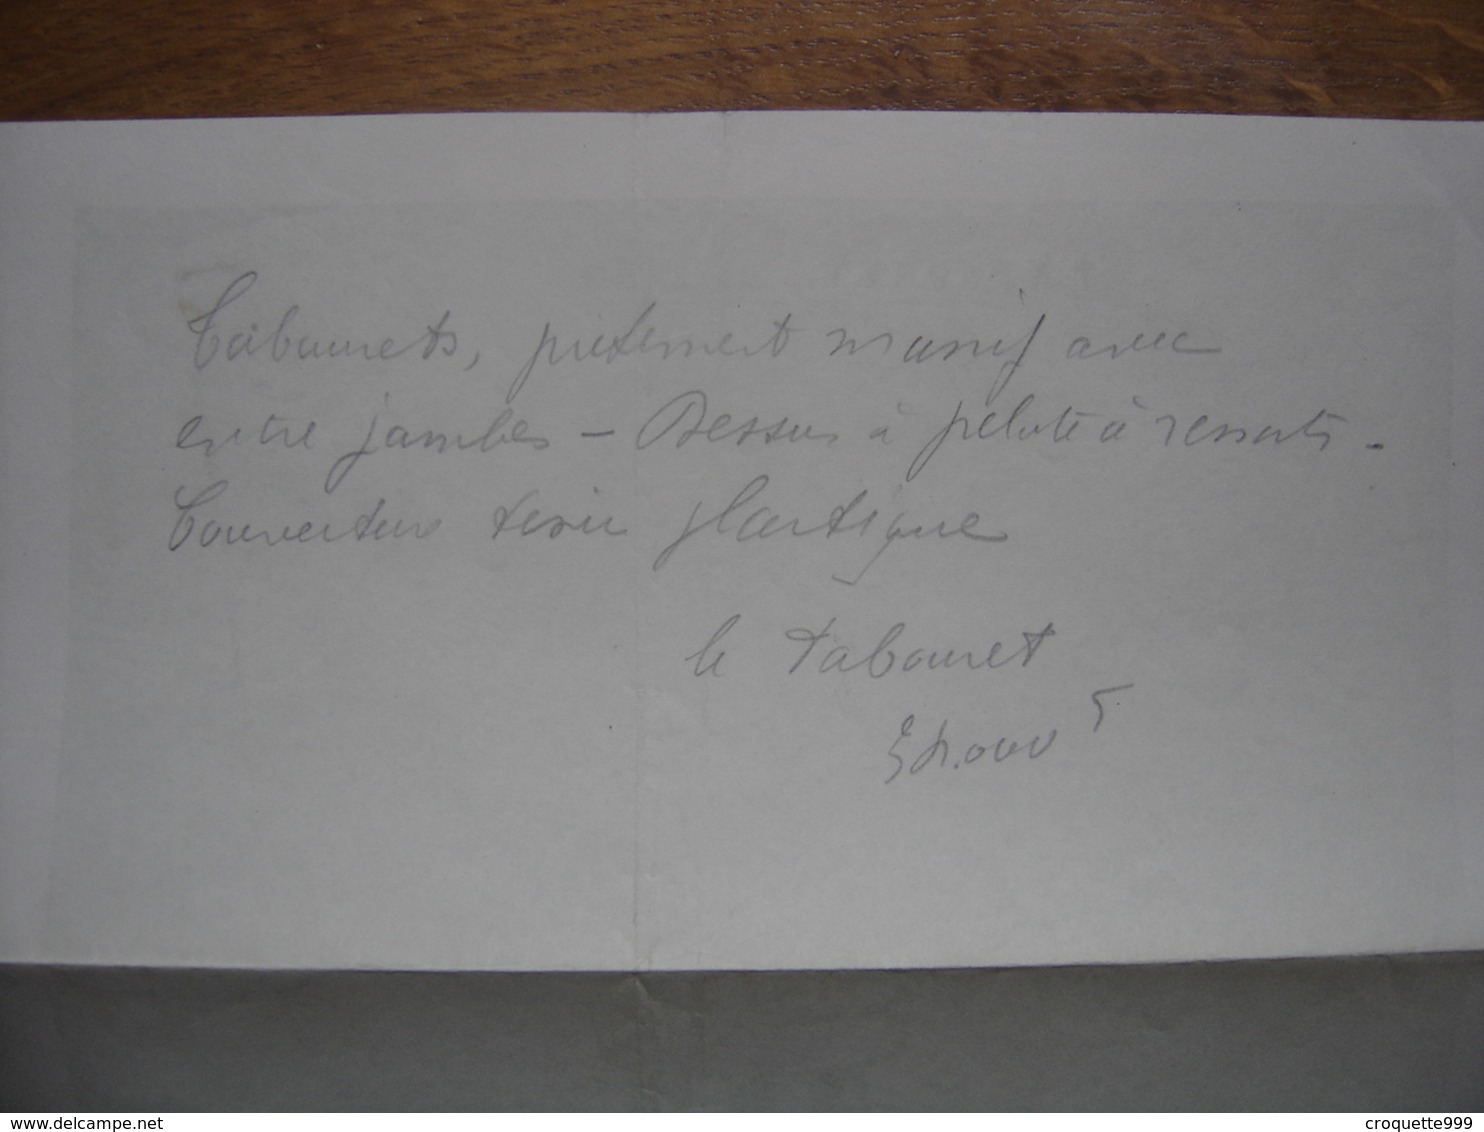 Tabourets, piètement massif avec
entre jambes - Dessus à pelote à ressorts -
Couverture tissu plastique
le tabouret
delcampe.net
croquette999